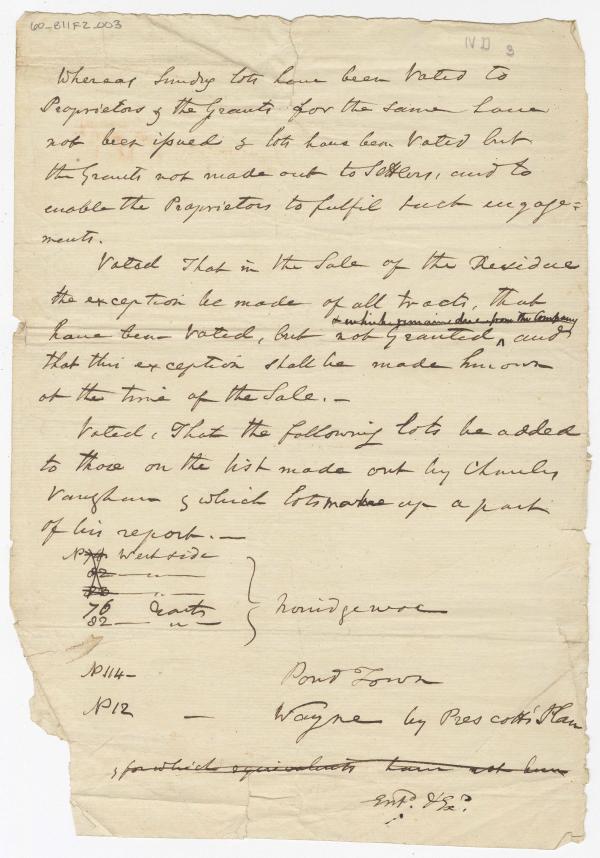 60-811F2-003
IV D 3
Whereas Sundry lots have been Voted to
Proprietors & the Grants for the same have
not been issued & lots have been Voted but
the Grants not made out to Settlers, and to
enable the Proprietors to fulfil such engage=
ments.
Voted That in the Sale of the Residue
the exception be made of all tracts, that
& which remains due from the Company
have been Voted, but not Granted ^ and
that this exception shall be made known
at the time of the Sale. -
Voted, That the following lots be added
to those on the list made out by Charles
Vaughan & which lots make up a part
of his report. -
No West side
82 — "
76 East
82 — " — Norridgewoc
No 114 - Pond Town
No 12 — Wayne by Prescott's Plan
& for which equivalents have not been
Entd. & Exd.